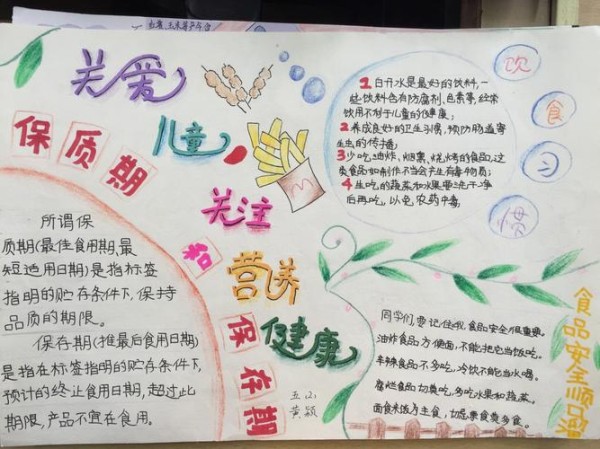 关爱
儿童
关注
和
营养
健康
保质期
所谓保
质期(最佳食用期,最
短适用日期)是指标签
指明的贮存条件下,保持
品质的期限。
保存期(推最后食用日期)
是指在标签指明的贮存条件下,
预计的终止食用日期,超过此
期限,产品不宜在食用。
保存期
五(2)
黄颖
饮
食
习
惯
1白开水是最好的饮料,一
些饮料含有防腐剂、色素等,经常
饮用不利于儿童的健康;
2养成良好的卫生习惯,预防肠道寄
生虫的传播;
3少吃油炸、烟熏、烧烤的食品,这
类食品如制作不当会产生有毒物质;
4生吃的蔬菜和水果要洗干净
后再吃,以免农药中毒。
食品安全顺口溜
同学们,要记住哦,食品安全很重要。
油炸食品方便面,不能把它当饭吃。
辛辣食品不多吃,冷饮不能当水喝。
腐烂食品切莫吃,多吃水果和蔬菜。
面食米饭为主食,